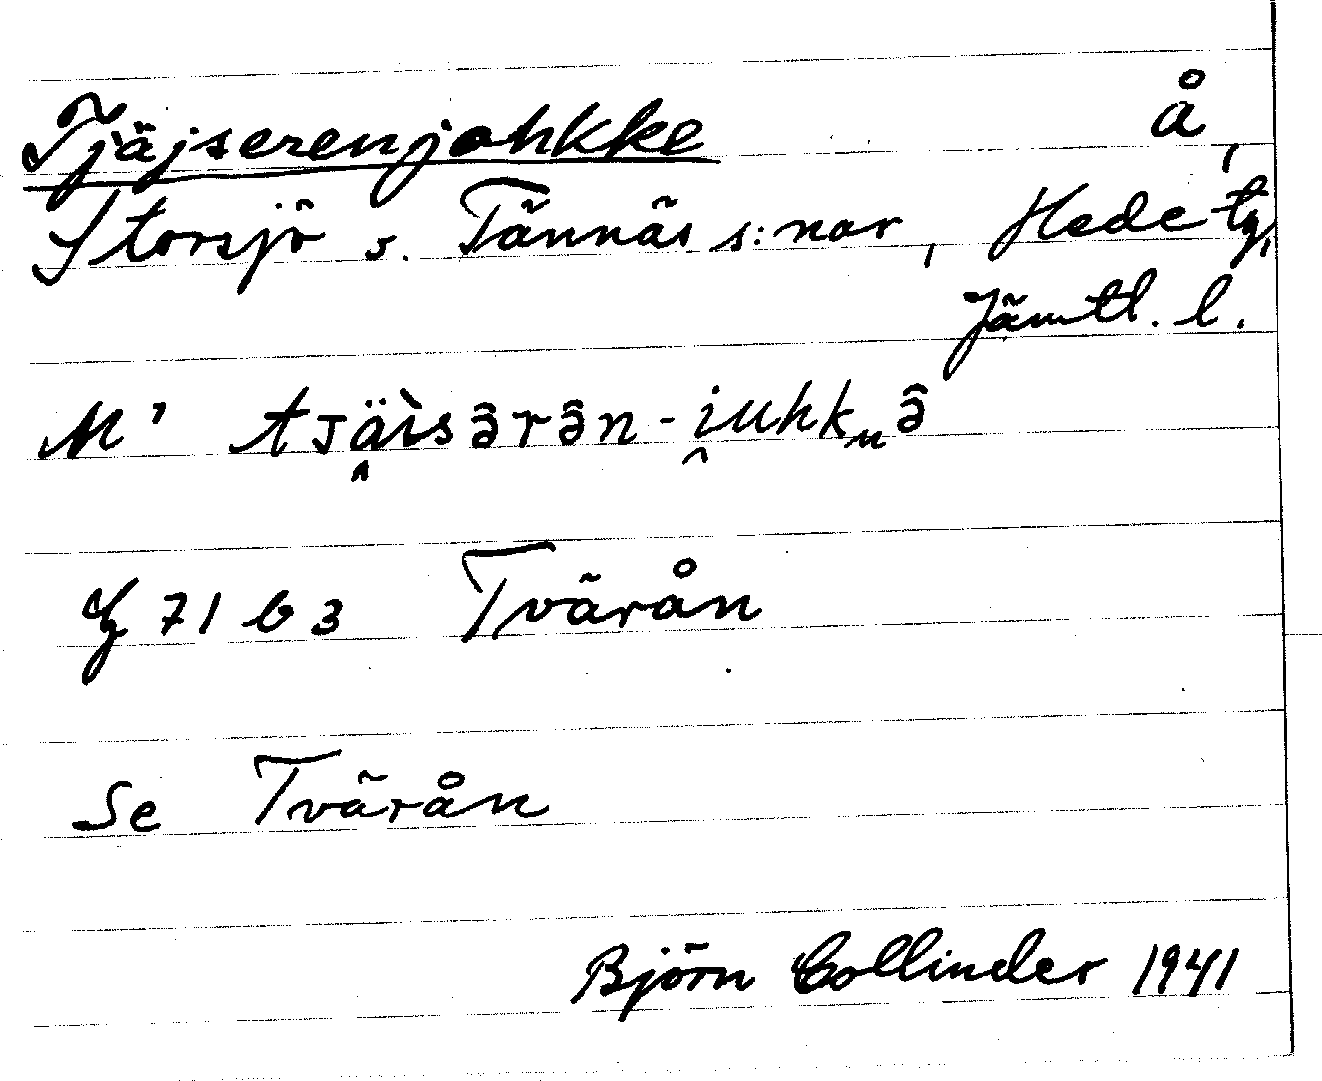 Tjäjserenjohkke å,
Storsjö o. Tännäs s:nar, Hede tg,
Jämtl. l.
M' tjäi̯sêrên-i̯uhkᵤê
G 71 b 3 Tvärån
Se Tvärån
Björn Collinder 1941